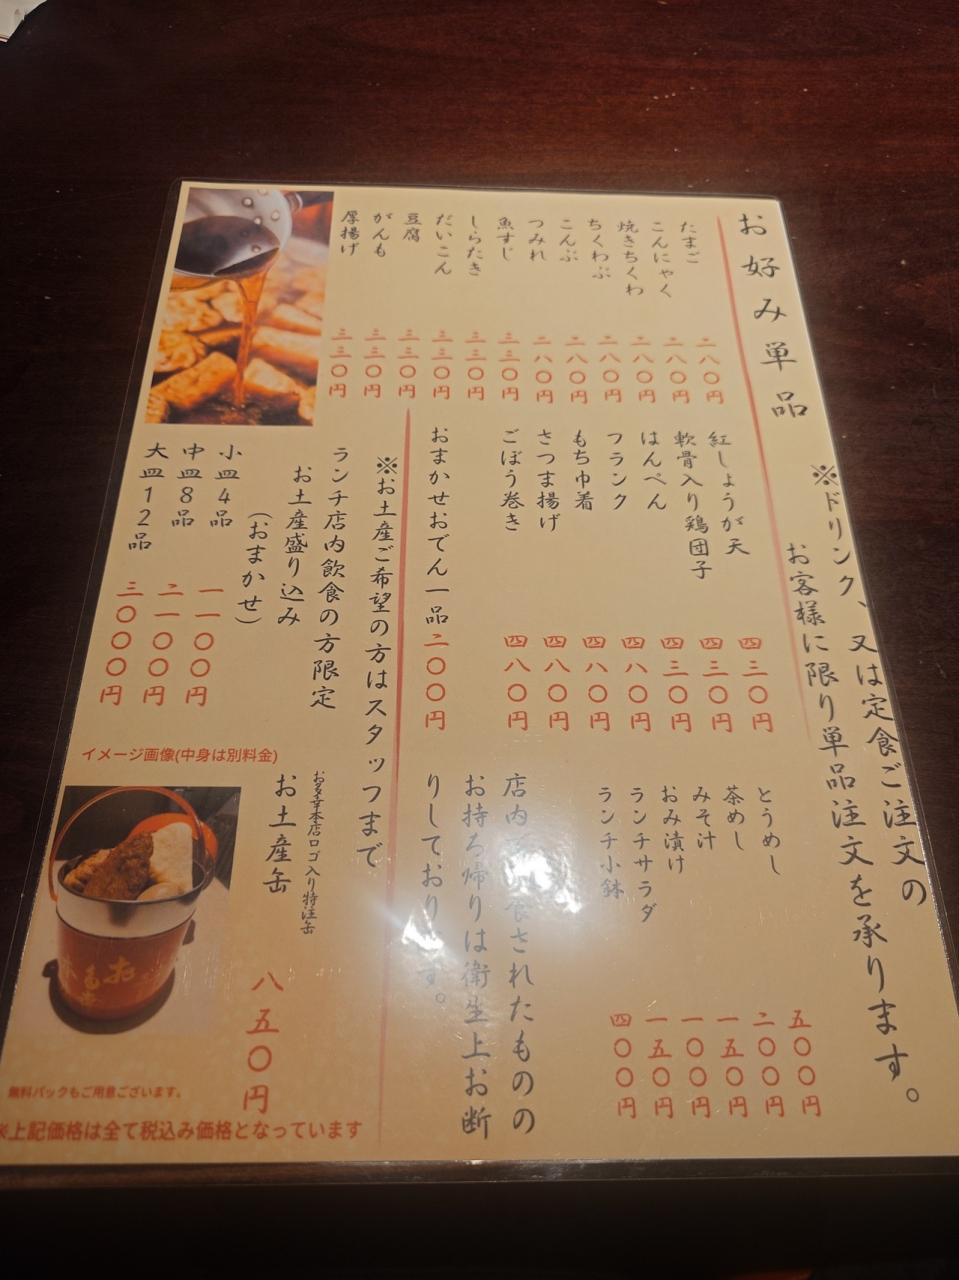 お好み単品
※ドリンク、又は定食ご注文の
お客様に限り単品注文を承ります。
たまご 二八〇円
こんにゃく 二八〇円
焼きちくわ 二八〇円
ちくわぶ 二八〇円
こんぶ 二八〇円
つみれ 二八〇円
魚すじ 三三〇円
しらたき 三三〇円
だいこん 三三〇円
豆腐 三三〇円
がんも 三三〇円
厚揚げ 三三〇円
紅しょうが天 四三〇円
軟骨入り鶏団子 四三〇円
はんぺん 四三〇円
フランク 四八〇円
もち巾着 四八〇円
さつま揚げ 四八〇円
ごぼう巻き 四八〇円
おまかせおでん一品 二〇〇円
とうめし 五〇〇円
茶めし 二〇〇円
みそ汁 一五〇円
おみ漬け 一〇〇円
ランチサラダ 一五〇円
ランチ小鉢 四〇〇円
店内 食されたものの
お持ち帰りは衛生上お断
りしております。
※お土産ご希望の方はスタッフまで
ランチ店内飲食の方限定
お土産盛り込み
(おまかせ)
小皿4品 一一〇〇円
中皿8品 二一〇〇円
大皿12品 三〇〇〇円
お多幸本店ロゴ入り特注缶
お土産缶 八五〇円
イメージ画像(中身は別料金)
無料パックもご用意ございます。
※上記価格は全て税込み価格となっています